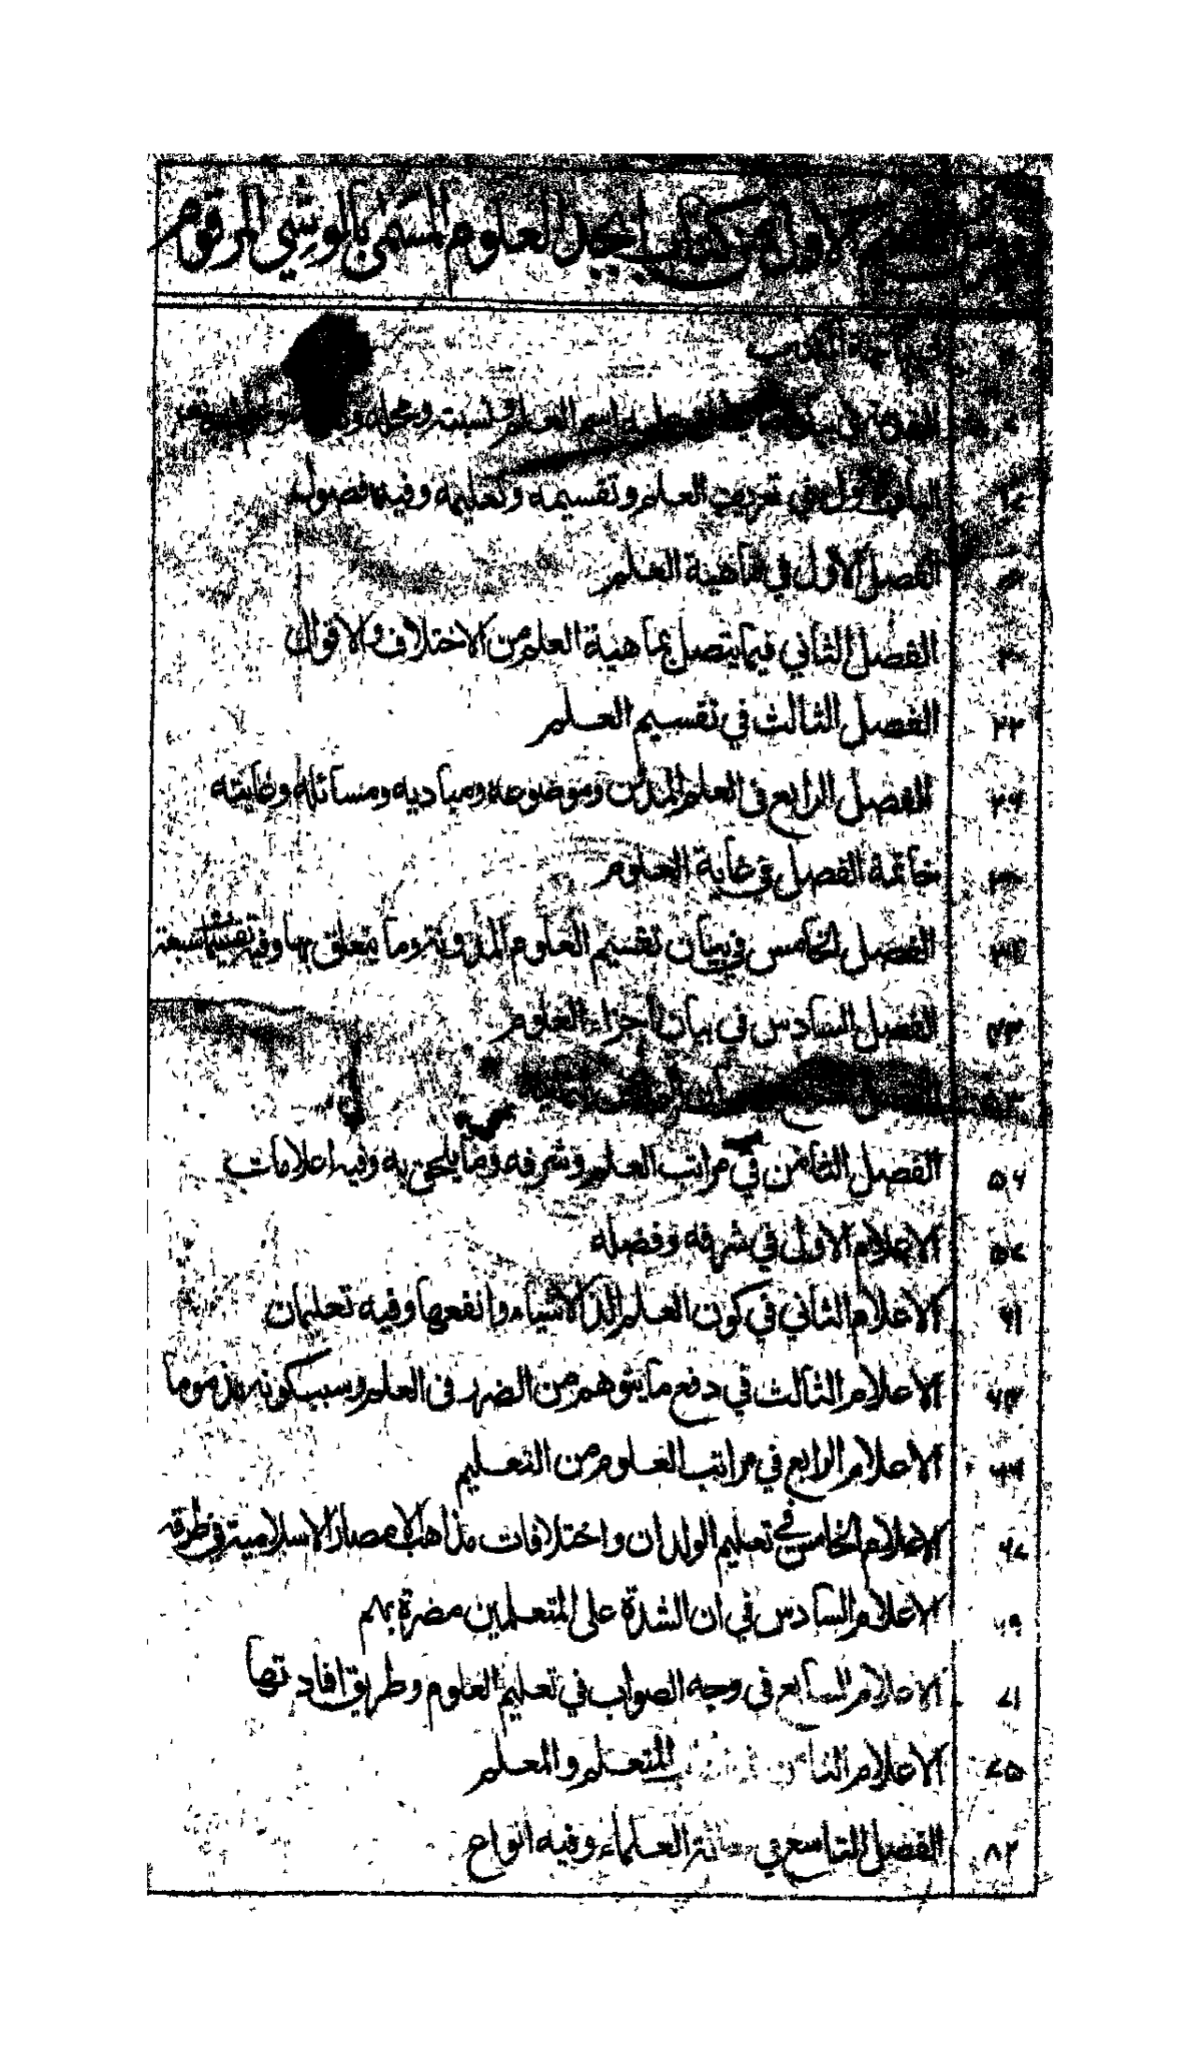 القسم الاول من كتاب ابجد العلوم المسمى بالوشي المرقوم
اسم العلم ونسبته ومحله
الباب الاول في تعريف العلم وتقسيمه وتعليمه وفيه فصول
الفصل الاول في ماهية العلم
٢٠ الفصل الثاني فيما يتصل بماهية العلم من الاختلاف والاقوال
٢٢ الفصل الثالث في تقسيم العلم
٢٦ الفصل الرابع في العلم المدون وموضوعه ومباديه ومسائله وغايته
خاتمة الفصل في غاية العلوم
الفصل الخامس في بيان تقسيم العلوم المدونة وما يتعلق بها وفيه تقسيمات سبعة
الفصل السادس في بيان اجزاء العلوم
الفصل
٥٦ الفصل الثامن في مراتب العلم وشرفه وما يلحق به وفيه اعلامات
٥٧ الاعلام الاول في شرفه وفضله
٦١ الاعلام الثاني في كون العلم الذ الاشياء وانفعها وفيه تعليمان
٦٣ الاعلام الثالث في دفع ما يتوهم من الضرر في العلم وسبب كونه مذموما
الاعلام الرابع في مراتب العلوم من التعليم
٦٧ الاعلام الخامس في تعليم الولدان واختلافات مذاهب الامصار الاسلامية في طرقه
٦٩ الاعلام السادس في ان الشدة على المتعلمين مضرة بهم
٧١ الاعلام السابع في وجه الصواب في تعليم العلوم وطريق افادتها
٧٥ الاعلام الثامن المتعلم والمعلم
٨٢ الفصل التاسع في العلماء وفيه انواع